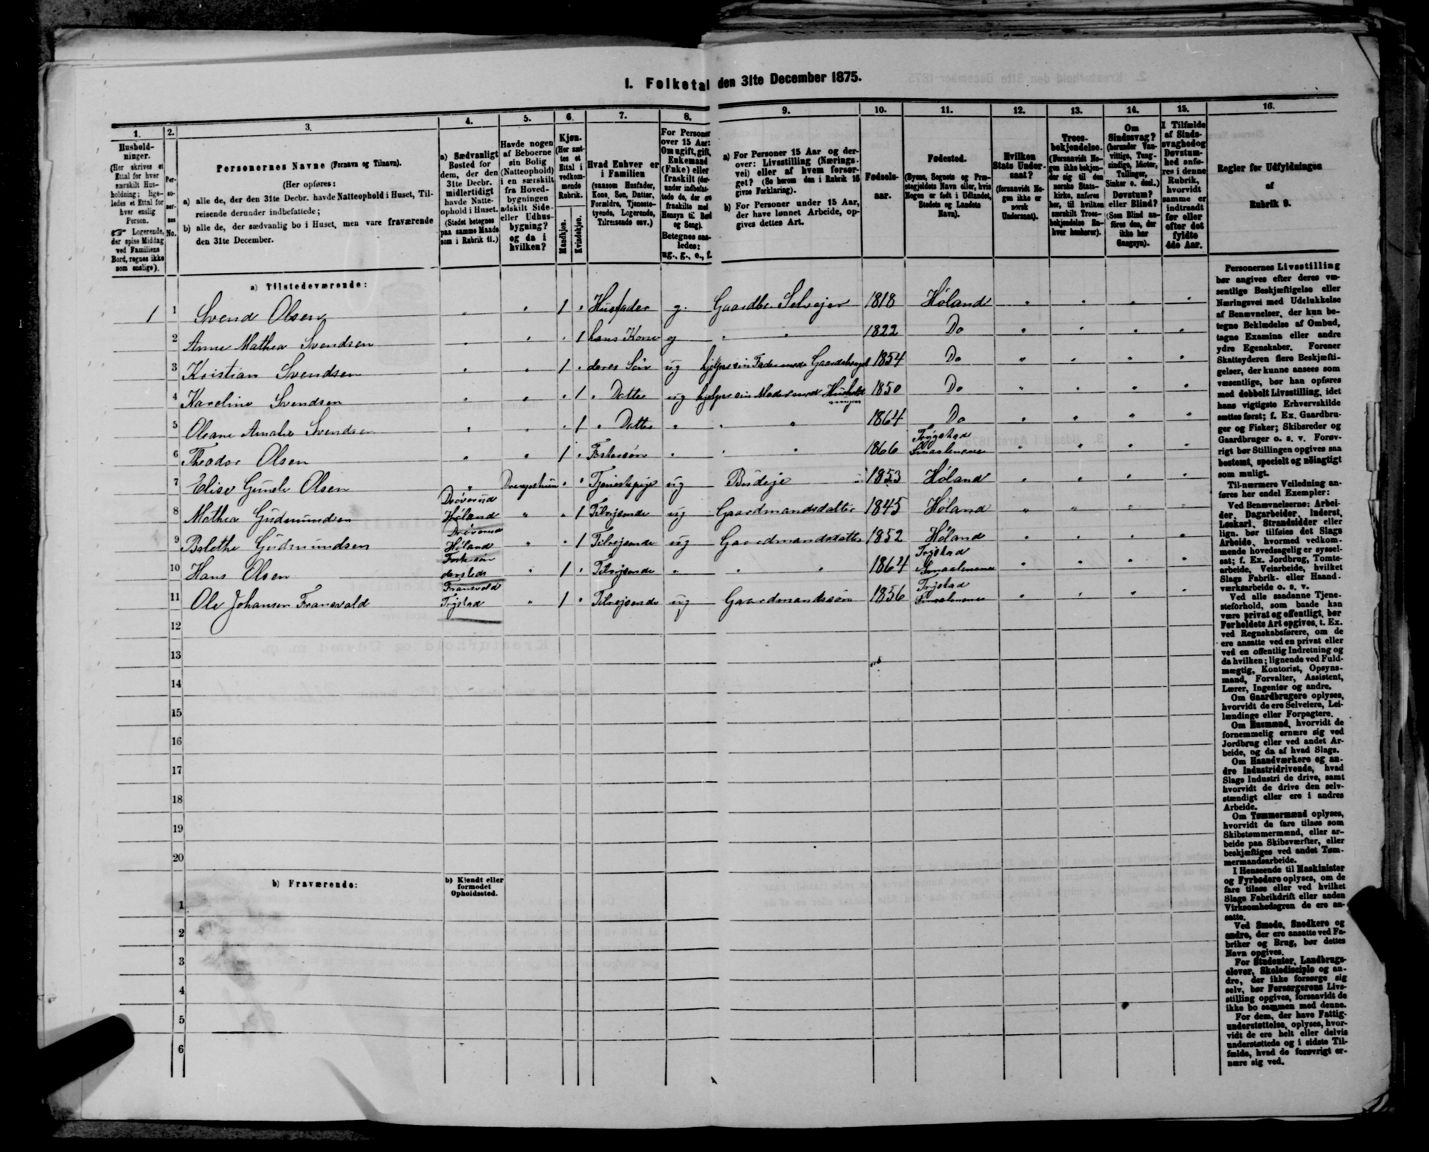 1. Folketal den 31te December 1875.
1. 2. 3. 4. 5. 6. 7. 8. 9. 10. 11. 12. 13. 14. 15. 16.
Hushold-
ninger.
(Her skrives et
Ettal for hver
særskilt Hus-
holdning; lige-
ledes et Ettal for
hver enslig
Person.
☞ Logerende,
der spise Middag
ved Familiens
Bord, regnes ikke
som enslige).
Per-
so-
ner-
nes
No.
Personernes Navne (Fornavn og Tilnavn).
(Her opføres:
a) alle de, der den 31te Decbr. havde Natteophold i Huset, Til-
reisende derunder indbefattede;
b) alle de, der sædvanlig bo i Huset, men vare fraværende
den 31te December.
a) Sædvanligt
Bosted for
dem, der den
31te Decbr.
midlertidigt
havde Natte-
ophold i Huset.
(Stedet betegnes
paa samme Maade
som i Rubrik 11.)
Havde nogen
af Beboerne
sin Bolig
(Natteophold)
i en særskilt
fra Hoved-
bygningen
adskilt Side-
eller Udhus-
bygning?
og da i
hvilken?
Kjøn.
(Her sæt-
tes et
Ettal i
vedkom-
mende
Rubrik.)
Mandkjøn.
Kvindekjøn.
Hvad Enhver er
i Familien
(saasom Husfader,
Kone, Søn, Datter,
Forældre, Tjeneste-
tyende, Logerende,
Tilreisende osv.)
For Personer
over 15 Aar:
Om ugift, gift,
Enkemand
(Enke) eller
fraskilt (her-
under indbefat-
tede de, der ere
fraskilte med
Hensyn til Bord
og Seng).
Betegnes saa-
ledes:
ug., g., e., f.
a) For Personer 15 Aar og der-
over: Livsstilling (Nærings-
vei) eller af hvem forsør-
get? (Se herom den i Rubrik 16
givne Forklaring).
b) For Personer under 15 Aar,
der have lønnet Arbeide, op-
gives dettes Art.
Fødsels-
aar.
Fødested.
(Byens, Sognets og Præ-
stegjeldets Navn eller, hvis
Nogen er født i Udlandet,
Stedets og Landets
Navn).
Hvilken
Stats Under-
saat?
(forsaavidt No-
gen ikke er
norsk
Undersaat).
Troes-
bekjendelse.
(Forsaavidt No-
gen ikke bekjen-
der sig til den
norske Stats-
kirke, anføres
her, til hvilken
særskilt Troes-
bekjendelse En-
hver henhører).
Om
Sindssvag?
(herunder Van-
vittige, Tung-
sindige, Idioter,
Tullinger,
Sinker o. desl.).
Døvstum?
eller Blind?
(Som Blind an-
føres den, der
ikke har
Gangsyn).
I Tilfælde
af Sinds-
svaghed og
Døvstum-
hed anfø-
res i denne
Rubrik,
hvorvidt
samme er
indtraadt
før eller
efter det
fyldte
4de Aar.
Regler for Udfyldningen
af
Rubrik 9.
a) Tilstedeværende:
1 1 Svend Olsen " " 1 " Husfader g. Gaardbr. Selveier 1818 Høland " " " "
2 Anne Mathea Svendsen " " " 1 hans Kone g " " 1822 Do " " " "
3 Kristian Svendsen " " 1 " deres Søn ug hjelper sin Fader med Gaardsbruget 1854 Do " " " "
4 Karoline Svendsen " " " 1 " Datter ug hjelper sin Moder med Husholdningen 1850 Do " " " "
5 Oleane Amalie Svendsen " " " 1 " Datter " " " 1864 Do " " " "
6 Theodor Olsen " " 1 " Fostersøn " " " 1866 Trøgstad Smaalenene " " " "
7 Elise Gunels Olsen " Drengestuen " " Tjenestepige ug Budeje 1853 Høland " " " "
8 Mathea Gudmundsen Høland " " 1 Tilreisende ug Gaardmandsdatter 1845 Høland " " " "
9 Gudmundsen Høland " " 1 Tilreisende ug Gaardmandsdatter 1852 Høland " " " "
10 Hans Olsen " 1 " Tilreisende " " " 1864 Trøgstad Smaalenene " " " "
11 Ole Johansen Fransvold Fransvold Trøgstad " 1 " Tilreisende ug Gaardmandssøn 1856 Trøgstad Smaalenene " " " "
12
13
14
15
16
17
18
19
20
b) Fraværende:
b) Kjendt eller
formodet
Opholdssted.
1
2
3
4
5
6
Personernes Livsstilling
bør angives efter deres væ-
sentlige Beskjæftigelse eller
Næringsvei med Udelukkelse
af Benævnelser, der kun be-
tegne Beklædelse af Ombud,
tagne Examina eller andre
ydre Egenskaber. Forener
Skatteyderen flere Beskjæfti-
gelser, der kunne ansees som
væsentlige, bør han opføres
med dobbelt Livsstilling, idet
hans vigtigste Erhvervskilde
sættes først; f. Ex. Gaardbru-
ger og Fisker; Skibsreder og
Gaardbruger o. s. v. Forøv-
rigt bør Stillingen opgives saa
bestemt, specielt og nøiagtigt
som muligt.
Til nærmere Veiledning an-
føres her endel Exempler:
Ved Benævnelserne: Arbei-
der, Dagarbeider, Inderst,
Løskarl, Strandsidder eller
lign. bør tilføies det Slags
Arbeide, hvormed vedkom-
mende hovedsagelig er syssel-
sat; f. Ex. Jordbrug, Tomte-
arbeide, Veiarbeide, hvilket
Slags Fabrik- eller Haand-
værksarbeide o. s. v.
Ved alle saadanne Tjene-
steforhold, som baade kan
være privat og offentligt, bør
Forholdets Art opgives, t. Ex.
ved Regnskabsførere, om de
ere ansatte ved en privat eller
ved en offentlig Indretning og
da hvilken; lignende ved Fuld-
mægtig, Kontorist, Opsyns-
mand, Forvalter, Assistent,
Lærer, Ingeniør og andre.
Om Gaardbrugere oplyses,
hvorvidt de ere Selveiere, Lei-
lændinge eller Forpagtere.
Om Husmænd, hvorvidt de
fornemmelig ernære sig ved
Jordbrug eller ved andet Ar-
beide, og da af hvad Slags.
Om Haandværkere og an-
dre Industridrivende, hvad
Slags Industri de drive, samt
hvorvidt de drive den selv-
stændigt eller ere i andres
Arbeide.
Om Tømmermænd oplyses,
hvorvidt de fare tilsøs som
Skibstømmermænd, eller ar-
beide paa Skibsværfter, eller
beskjæftiges ved andet Tøm-
mermandsarbeide.
I Henseende til Maskinister
og Fyrbødere oplyses, om de
fare tilsøs eller ved hvilket
Slags Fabrikdrift eller anden
Virksomhedsgren de ere an-
satte.
Ved Smede, Snedkere og
andre, der ere ansatte ved Fa-
briker og Brug, bør dettes
Navn opgives.
For Studenter, Landbrugs-
elever, Skoledisciple og an-
dre, der ikke forsørge sig
selv, bør Forsørgerens Livs-
stilling opgives, forsaavidt de
ikke bo sammen med denne.
For dem, der have Fattig-
understøttelse, oplyses, hvor-
vidt de ere helt eller delvis
understøttede og i sidste Til-
fælde, hvad de forøvrigt er-
nære sig ved.